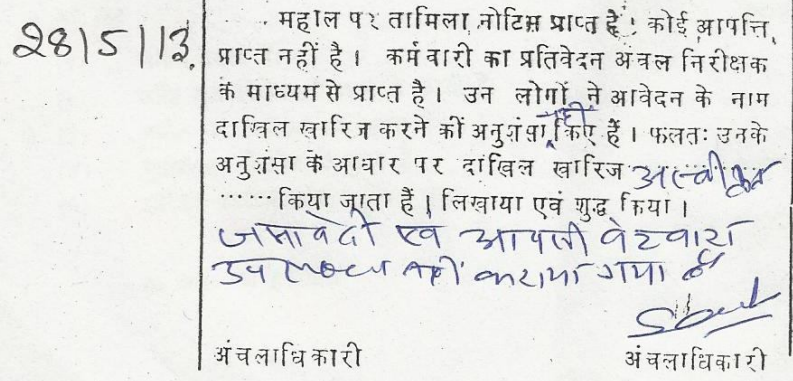 28/5/13.
..महाल पर तामिला नोटिस प्राप्त है। कोई आपत्ति,
प्राप्त नहीं है। कर्मचारी का प्रतिवेदन अंचल निरीक्षक
के माध्यम से प्राप्त है। उन लोगों ने आवेदन के नाम
दाखिल खारिज करने की अनुशंसा नहीं किए हैं। फलतः उनके
अनुशंसा के आधार पर दाखिल खारिज अस्वीकृत
...... किया जाता है। लिखाया एवं शुद्ध किया।
जमाबंदी एवं आपसी बंटवारा
उपलब्ध नहीं कराया गया है
अंचलाधिकारी अंचलाधिकारी